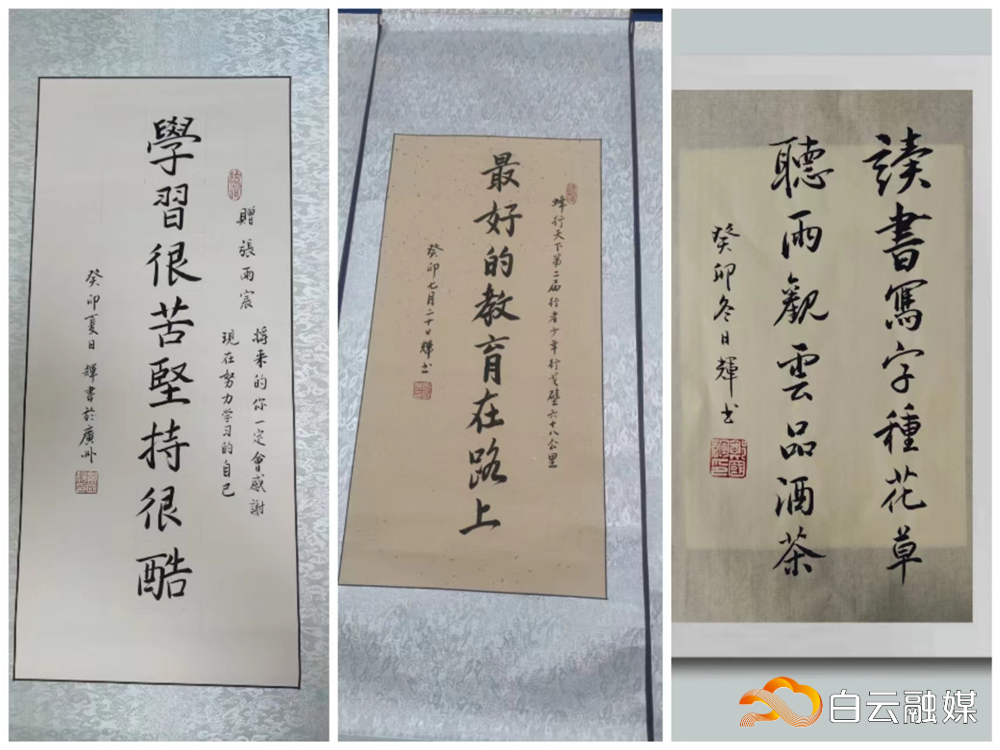 學習很苦堅持很酷
贈張雨宸
將来的你一定會感謝
現在努力学习的自己
癸卯夏日輝書於廣州
蜂行天下第二届行者少年行戈壁六十八公里
最好的教育在路上
癸卯七月二十日輝书
讀書寫字種花草
聽雨觀雲品酒茶
癸卯冬日輝书
白云融媒